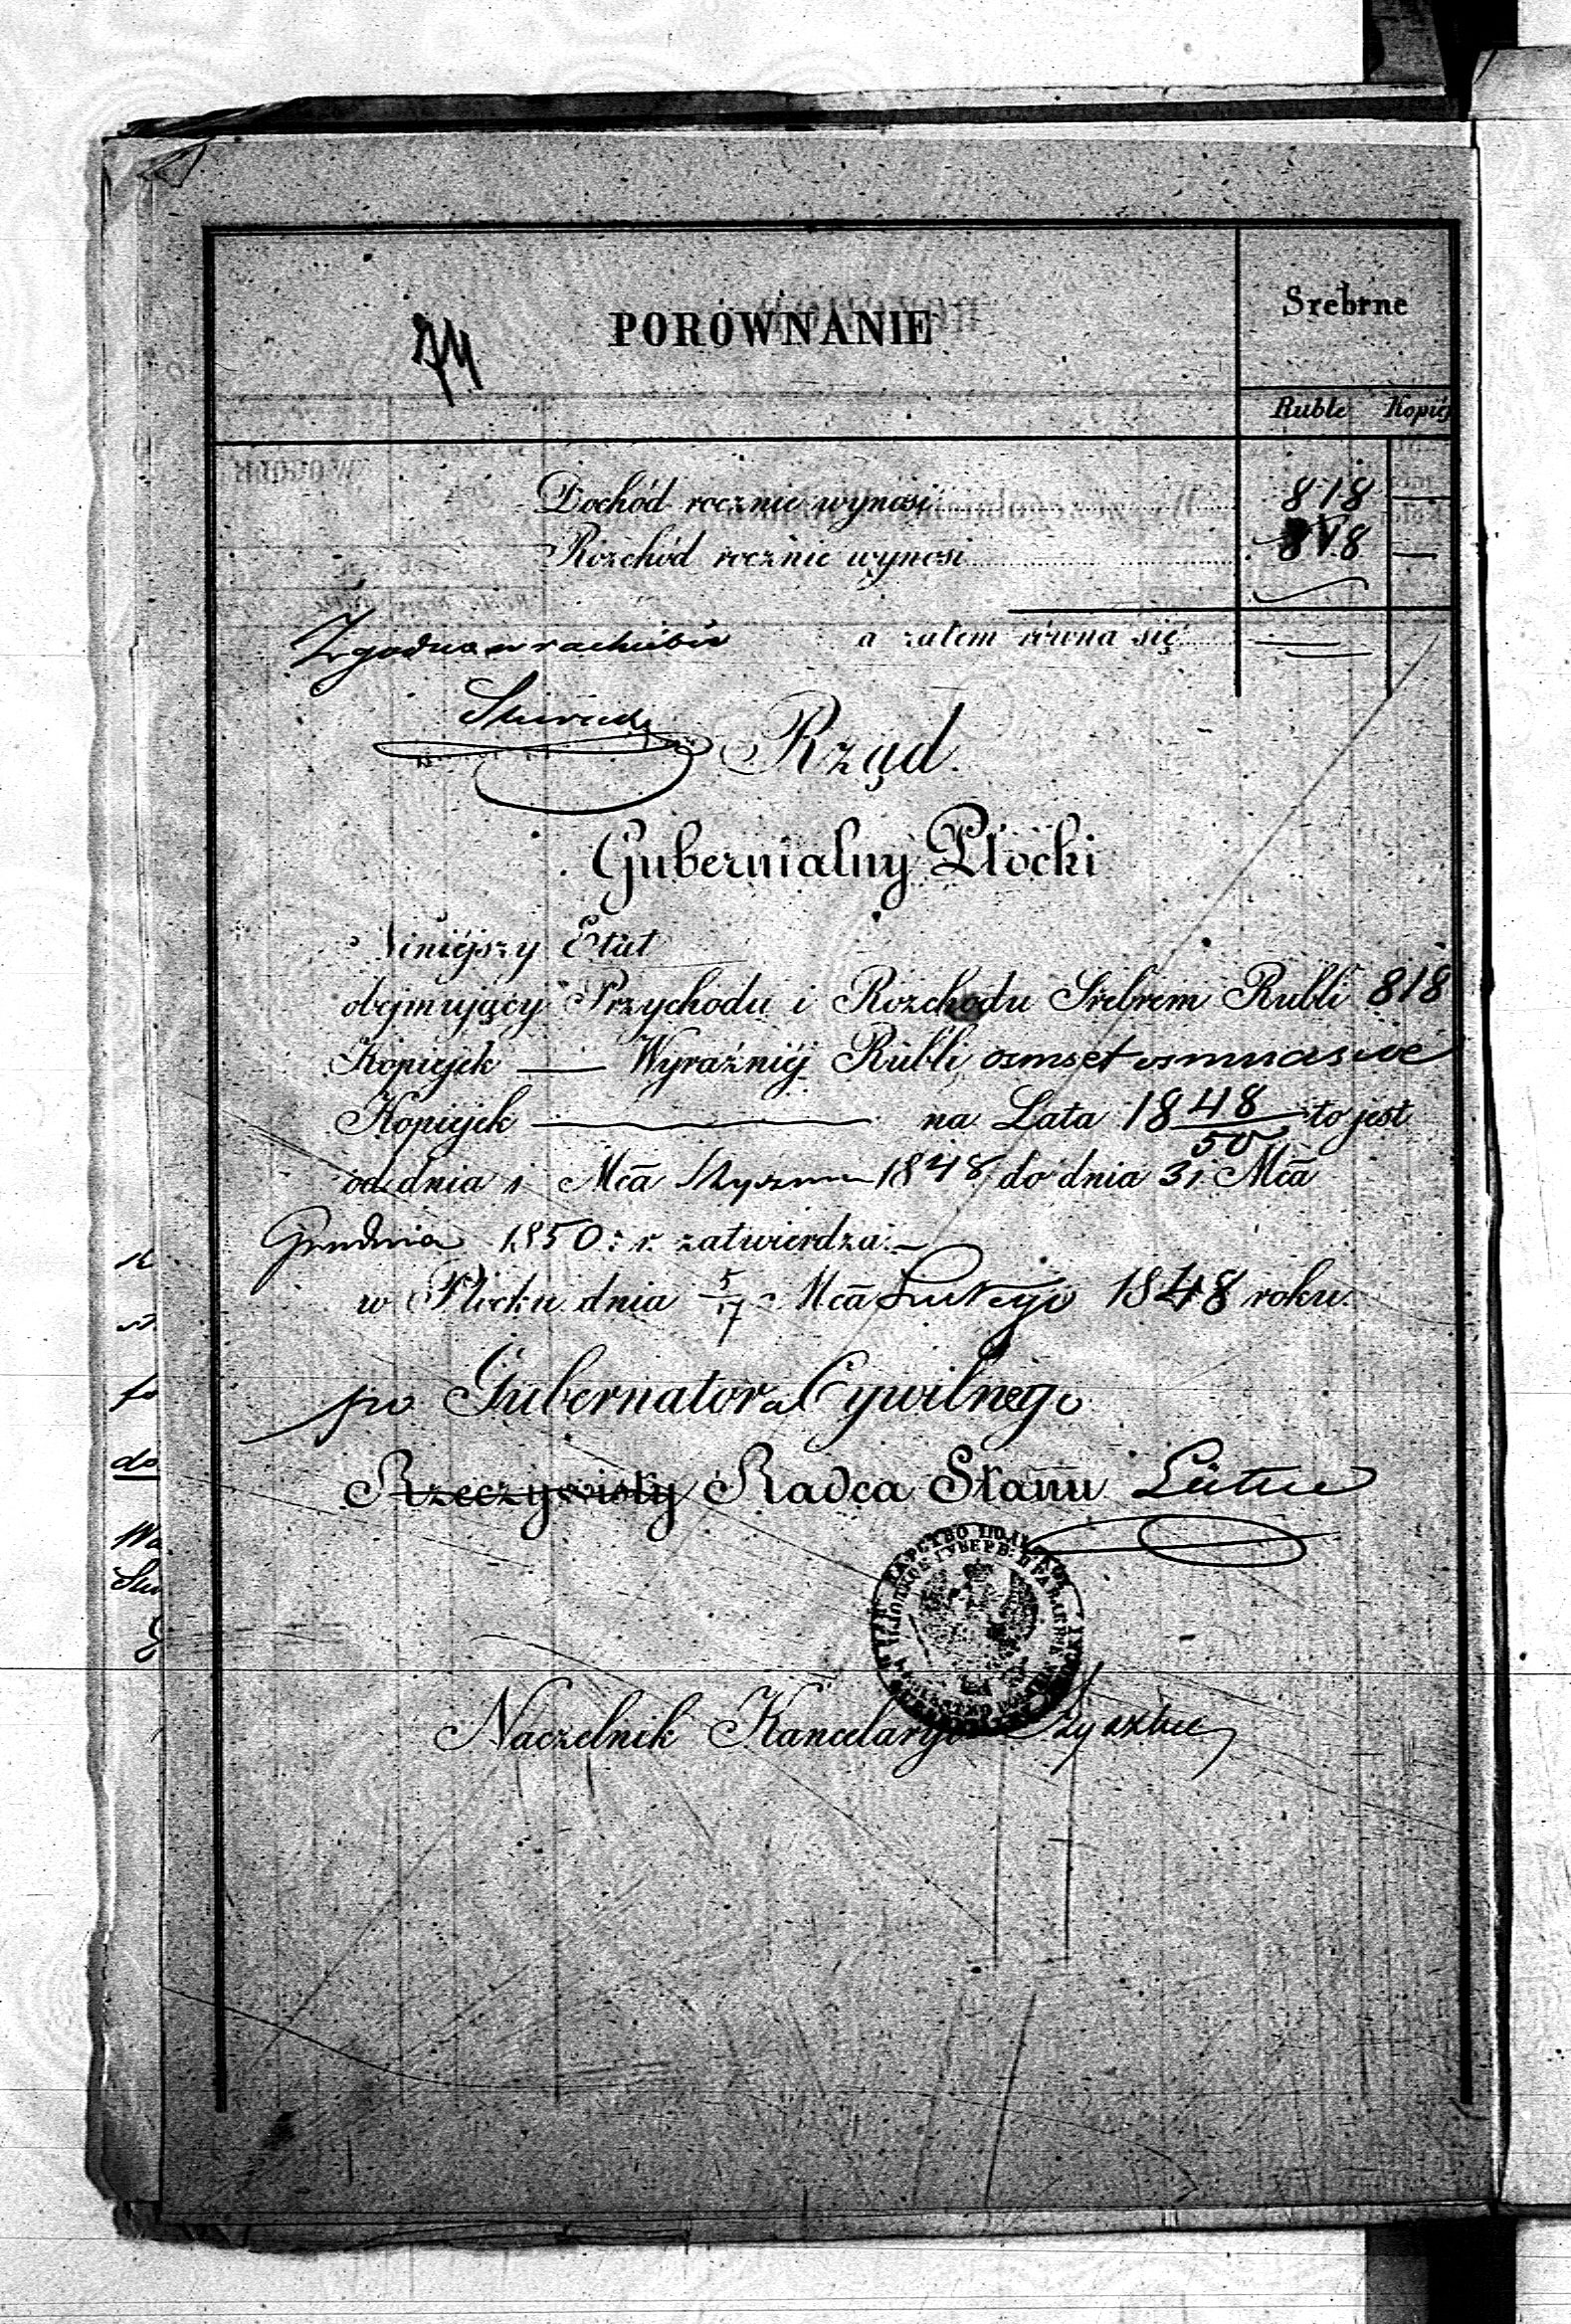 74
PORÓWNANIE
Srebrne
Ruble Kopiéj
Dochód rocznie wynosi 818 —
Rozchód rocznie wynosi 818 —
Zgodno w rachubie a zatem równa się
Rząd
Gubernialny Płocki
Niniéjszy Etat
obejmujący Przychodu i Rozchodu Srebrem Rubli 818
Kopiejek — Wyraźniéj Rubli osmset osmnaście
Kopiejek — na Lata 1848/50 to jest
od dnia 1 Mca Stycznia 1848 do dnia 31 Mca
Grudnia 1850 r. zatwierdza.
w Płocku dnia 5/17 Mca Lutego 1848 roku.
po Gubernatora Cywilnego
Rzeczywisty Radca Stanu
Naczelnik Kancelaryi